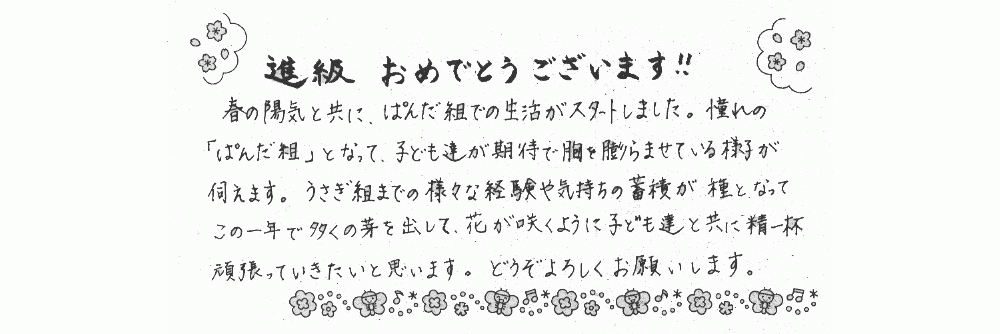 進級 おめでとうございます!!
春の陽気と共に、ぱんだ組での生活がスタートしました。憧れの
「ぱんだ組」となって、子ども達が期待で胸を膨らませている様子が
伺えます。うさぎ組までの様々な経験や気持ちの蓄積が種となって
この一年で多くの芽を出して、花が咲くように子ども達と共に精一杯
頑張っていきたいと思います。どうぞよろしくお願いします。